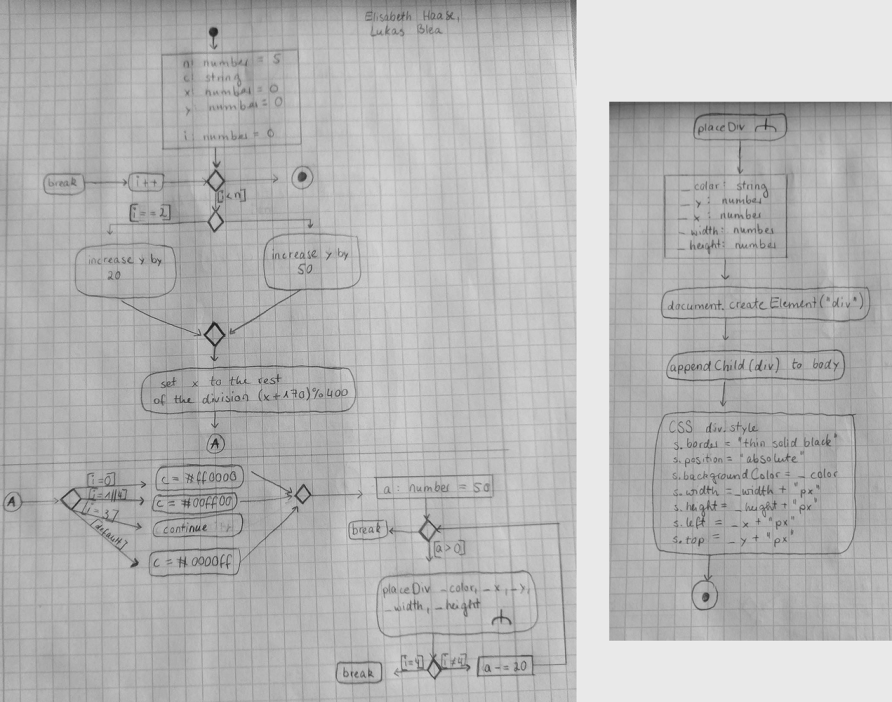 Elisabeth Haase,
Lukas Blea
n: number = 5
c: string
x: number = 0
y: number = 0
i: number = 0
break
i++
[i<n]
[i==2]
increase y by
20
increase y by
50
set x to the rest
of the division (x+170)%400
A
A
[i=0]
[i=1||4]
[i=3]
[default]
c = #ff0000
c = #00ff00
continue
c = #0000ff
a: number = 50
break
[a>0]
placeDiv _color, _x, _y,
_width, _height
break
[i=4]
[i≠4]
a -= 20
placeDiv
_color: string
_y: number
_x: number
_width: number
_height: number
document.createElement("div")
appendChild(div) to body
CSS div.style
s.border = "thin solid black"
s.position = "absolute"
s.backgroundColor = _color
s.width = _width + "px"
s.height = _height + "px"
s.left = _x + "px"
s.top = _y + "px"